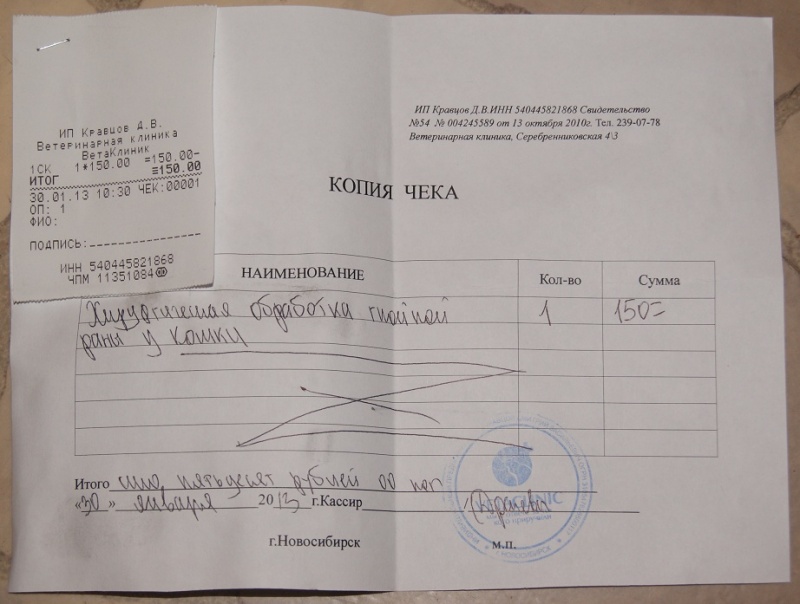 ИП Кравцов Д.В.
Ветеринарная клиника
ВетаКлиник
1СК 1*150.00 =150.00-
ИТОГ ≡150.00
30.01.13 10:30 ЧЕК:00001
ОП: 1
ФИО:
ПОДПИСЬ:
ИНН 540445821868
ЧПМ 11351084
ИП Кравцов Д.В.ИНН 540445821868 Свидетельство
№54 № 004245589 от 13 октября 2010г. Тел. 239-07-78
Ветеринарная клиника, Серебренниковская 4\3
КОПИЯ ЧЕКА
НАИМЕНОВАНИЕ Кол-во Сумма
Хирургическая обработка гнойной 1 150=
раны у кошки
Итого сто пятьдесят рублей 00 коп
«30» января 2013 г.Кассир
г.Новосибирск м.п.
CLINIC
г. НОВОСИБИРСК